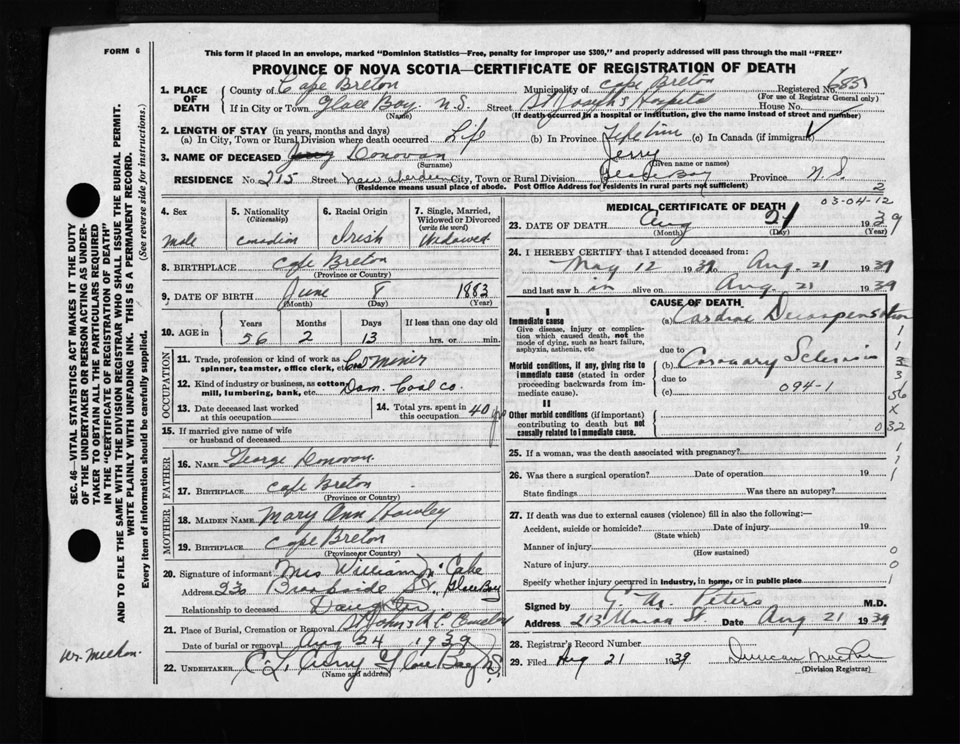 FORM 6
This form if placed in an envelope, marked "Dominion Statistics—Free, penalty for improper use $300," and properly addressed will pass through the mail "FREE"
PROVINCE OF NOVA SCOTIA—CERTIFICATE OF REGISTRATION OF DEATH
1. PLACE OF DEATH
County of Cape Breton Municipality of Cape Breton Registered No. 685
(For use of Registrar General only)
If in City or Town Glace Bay N.S. Street St Joseph's Hospital House No.
(Name) (If death occurred in a hospital or institution, give the name instead of street and number)
2. LENGTH OF STAY (in years, months and days)
(a) In City, Town or Rural Division where death occurred Life (b) In Province Life time (c) In Canada (if immigrant)
3. NAME OF DECEASED Donovan Jerry
(Surname) (Given name or names)
RESIDENCE No. 275 Street New Aberdeen City, Town or Rural Division Glace Bay Province N S
(Residence means usual place of abode. Post Office Address for residents in rural parts not sufficient)
2
03-04-12
4. Sex
male
5. Nationality
(Citizenship)
Canadian
6. Racial Origin
Irish
7. Single, Married, Widowed or Divorced
(write the word)
Widowed
8. BIRTHPLACE Cape Breton
(Province or Country)
9. DATE OF BIRTH June 8 1883
(Month) (Day) (Year)
10. AGE in
Years Months Days If less than one day old
56 2 13 hrs. or min.
OCCUPATION
11. Trade, profession or kind of work as spinner, teamster, office clerk, etc. Coal Miner
12. Kind of industry or business, as cotton mill, lumbering, bank, etc. Dom. Coal Co.
13. Date deceased last worked at this occupation
14. Total yrs. spent in this occupation 40 yrs
15. If married give name of wife or husband of deceased
FATHER
16. NAME George Donovan
17. BIRTHPLACE Cape Breton
(Province or Country)
MOTHER
18. MAIDEN NAME Mary Ann Hawley
19. BIRTHPLACE Cape Breton
(Province or Country)
20. Signature of informant Mrs William McCabe
Address 230 Brookside St., Glace Bay
Relationship to deceased Daughter
21. Place of Burial, Cremation or Removal St John's R.C. Cemetery
Date of burial or removal Aug 24 1939
22. UNDERTAKER Glace Bay N.S.
(Name and address)
MEDICAL CERTIFICATE OF DEATH
23. DATE OF DEATH Aug 21 1939
(Month) (Day) (Year)
24. I HEREBY CERTIFY that I attended deceased from:
May 12 1939 to Aug. 21 1939
and last saw him alive on Aug. 21 1939
CAUSE OF DEATH
I
Immediate cause
Give disease, injury or complication which caused death, not the mode of dying, such as heart failure, asphyxia, asthenia, etc
(a) Cardiac Decompensation
due to
Morbid conditions, if any, giving rise to immediate cause (stated in order proceeding backwards from immediate cause).
(b) Coronary Sclerosis
due to
(c) 094-1
II
Other morbid conditions (if important) contributing to death but not causally related to immediate cause.
1
1
3
3
56
x
032
25. If a woman, was the death associated with pregnancy?
26. Was there a surgical operation? Date of operation 19
State findings Was there an autopsy?
1
1
1
27. If death was due to external causes (violence) fill in also the following:—
Accident, suicide or homicide? Date of injury 19
(State which)
Manner of injury 0
(How sustained)
Nature of injury 0
Specify whether injury occurred in industry, in home, or in public place 1
Signed by G. M. Peters M.D.
Address 213 Union St. Date Aug 21 1939
28. Registrar's Record Number
29. Filed Aug 21 1939 Duncan
(Division Registrar)
SEC. 46—VITAL STATISTICS ACT MAKES IT THE DUTY OF THE UNDERTAKER OR PERSON ACTING AS UNDERTAKER TO OBTAIN ALL THE PARTICULARS REQUIRED IN THE "CERTIFICATE OF REGISTRATION OF DEATH" AND TO FILE THE SAME WITH THE DIVISION REGISTRAR WHO SHALL ISSUE THE BURIAL PERMIT.
WRITE PLAINLY WITH UNFADING INK. THIS IS A PERMANENT RECORD.
Every item of information should be carefully supplied. (See reverse side for instructions.)